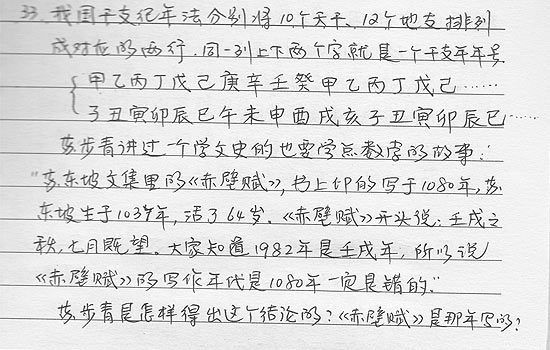 33. 我国干支纪年法分别将10个天干、12个地支排列
成对应的两行,同一列上下两个字就是一个干支年年号
甲乙丙丁戊己庚辛壬癸甲乙丙丁戊己……
子丑寅卯辰巳午未申酉戌亥子丑寅卯辰巳……
苏步青讲过一个学文史的也要学点数学的故事:
"苏东坡文集里的《赤壁赋》,书上印的写于1080年,苏
东坡生于1037年,活了64岁.《赤壁赋》开头说:壬戌之
秋,七月既望.大家知道1982年是壬戌年,所以说
《赤壁赋》的写作年代是1080年一定是错的."
苏步青是怎样得出这个结论的?《赤壁赋》是那年写的?